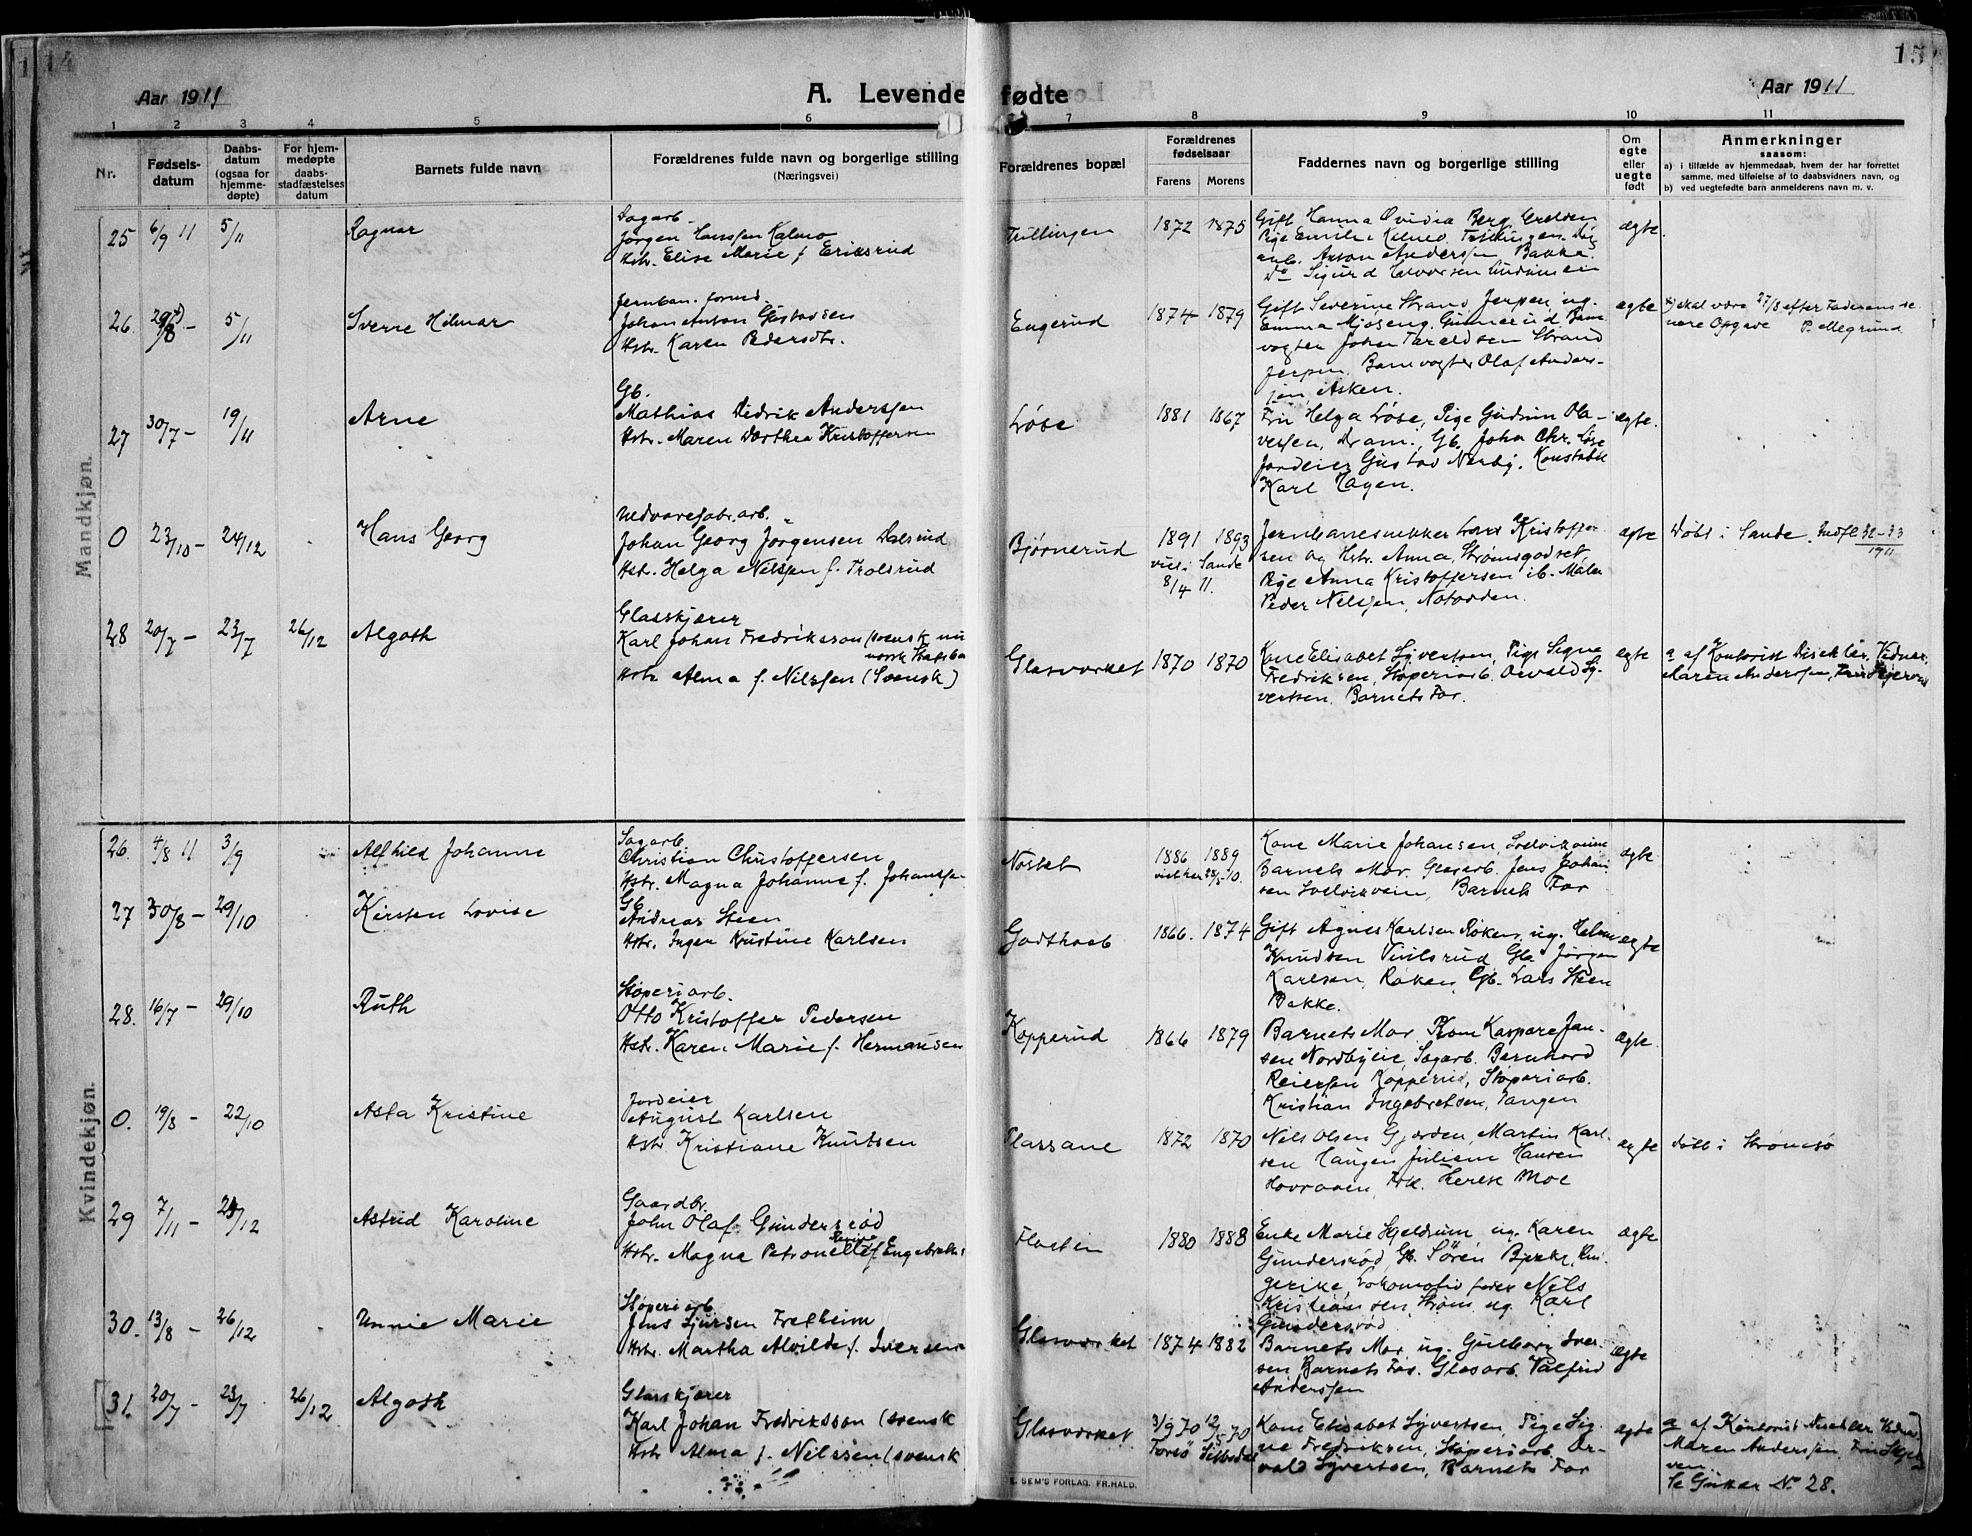 14
15
Aar 1911
A. Levende fødte
Aar 1911
1 2 3 4 5 6 7 8 9 10 11
Nr.
Fødsels-
datum
Daabs-
datum
(ogsaa for
hjemme-
døpte)
For hjem-
medøpte
daabs-
stadfæstelses
datum
Barnets fulde navn
Forældrenes fulde navn og borgerlige stilling
(Næringsvei)
Forældrenes bopæl
Forældrenes
fødselsaar
Farens Morens
Faddernes navn og borgerlige stilling
Om
egte
eller
uegte
født
Anmerkninger
saasom:
a) i tilfælde av hjemmedaab, hvem der har forrettet
samme, med tilføielse af to daabsvidners navn, og
b) ved uegtefødte barn anmelderens navn m. v.
Mandkjøn.
25 6/9 11 5/11 Ragnar
Sagarb.
Jørgen Hanssen Kalmo
Hstr. Elise Marie f. Eriksrud
1872 1875
Gift Hanna Ovidia Berg
Pige Emilie
Anton Anderssen Bakke.
Do Sigurd
ægte.
26. 5/11 Sverre Hilmar
Jernban. formd.
Johan Anton Gustavsen
Hstr. Karen Pedersdtr.
Engerud
1874 1879
Gift Severine Strand Jerpen ug.
Emma Mjøseng, Gunnerud. Bane
vogter Johan Taraldsen Strand
Jerpen. Banevogter Olaf Anders-
sen, Asken.
ægte
skal være 27/8 efter Faderens se
nere Opgave P. Ellegrund
27 30/7 – 19/11 Arne
Gb.
Mathias Didrik Anderssen
Hstr. Maren Dorthea Kristoffersen
Løse
1881 1867
Fru Helga Løse, Pige Gudrun Ola-
versen, Dram., Gb. Johan Chr. Løse
Jordeier Gustav Nordby, Konstabel
Karl Hagen.
ægte.
0 23/10 – 24/12 Hans Georg
Uldvarefabr. arb.
Johan Georg Jørgensen Dalsrud
Hstr. Helga Nilssen f. Trolsrud
Bjørnerud
1891 1893
viet i Sande
8/4 11.
Jernbanesnekker Lars Kristoffer
sen og Hstr. Anna, Strømsgodset,
Pige Anna Kristoffersen ib. Maler
Peder Nelssen, Notodden.
egte
Døbt i Sande. 32–33
1911
28 20/7 – 23/7 26/12 Algoth
Glasskjærer
Karl Johan Fredriksson (svensk nu
norsk Statsbo
Hstr Alma f. Nilssen (Svensk)
Glasværket
1870 1870
Kone Elisabet Syvertsen, Pige Signe
Fredriksen, Støperiarb. Osvald Sy-
vertsen, Barnets Far.
egte
a af Kontorist
Maren Anderssen, Fru
Kvindekjøn.
26. 4/8 11 3/9 Alfhild Johanne
Sagarb.
Christian Christoffersen
Hstr. Magna Johanne f. Johansse
Nøstet
1886 1889
Kone Marie Johansen, Svelvikveien
Barnets Mor, Glasarb. Jens Johan
sen Svelvikveien, Barnets Far
ægte
27 30/8 – 29/10 Kirsten Lovise
Gb.
Andreas Steen
Hstr. Inga Kristine Karlsen
Godthaab
1866. 1874
Gift Agnes Karlsen Røken, ug. Helene
Knudsen Gb. Jørgen
Karlsen, Røken, Gb. Lars Steen
Bakke.
ægte
28. 16/7 – 29/10 Ruth
Støperiarb.
Otto Kristoffer Pedersen
Hstr. Karen Marie f. Hermansen
Kopperud
1866 1879
Barnets Mor, Kone Kaspara Jan-
sen Nordbyeie, Sagarb. Bernhard
Reierssen Kopperud, Støperiarb.
Kristian Ingebretsen, Tangen
ægte.
0. 19/8 – 22/10 Asta Kristine
Jordeier
August Karlsen
Hstr Kristiane Knutsen
Plassane
1872 1870
Nils Olsen Gjørden, Martin Karl-
sen Haugen, Juliane Hansen
Hovraaen, Frk. Terese Moe
ægte
døbt i Strømsø
29 7/11 – 23/12 Astrid Karoline
Gaardbr.
John Olaf Gundersrød
Hstr. Magna Petronelle f. Engebreths
Flaaten
1880 1888
Enke Marie Hjeldrum, ug. Karen
Gundersrød, Gb. Søren Bjerke, Rin-
gerike, Lokomotivfører Nels
Kristiansen, Strøms. ug. Karl
Gundersrød
ægte
30. 13/8 – 26/12 Unnie Marie
Støperiarb.
Jens Sjursen Fretheim
Hstr. Martha Alvilde f. Iversen
Glasværket
1874 1882
Barnets Mor, ug. Gulborg Iver-
sen, Barnets Far, Glasarb. Valfrid
Anderssen
ægte
31. 20/7 – 23/7 26/12 Algoth
Glasskjærer
Karl Johan Fredriksson (svensk
Hstr Alma f. Nilssen (svensk
Glasværket
3/9 70 12/5 70
Torsø
Kone Elisabet Syvertsen, Pige Sig-
ne Fredriksen, Støperiarb. Os-
vald Syvertsen, Barnets Far
egte
a af Kontorist
Maren Anderssen, Fru
ven
Se Gutter No 28.
E. SEM'S FORLAG. FR.HALD.